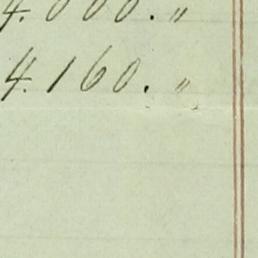 4.000. "
4.160. "